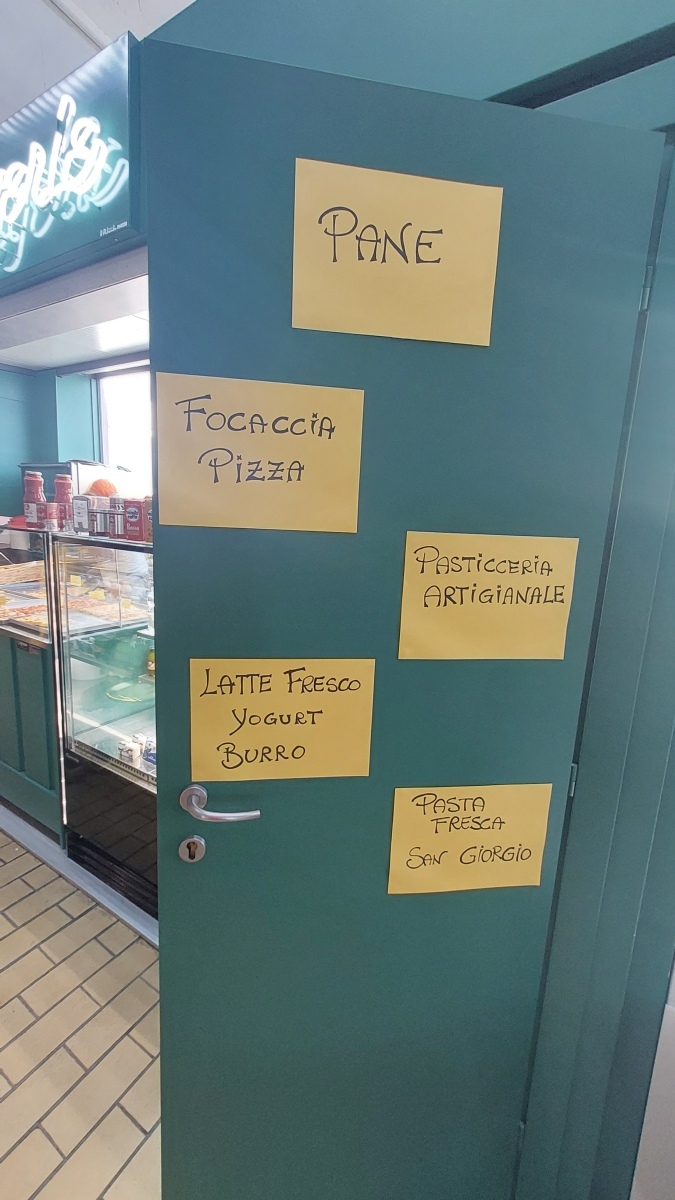 PANE
FOCACCIA
PIZZA
PASTICCERIA
ARTIGIANALE
LATTE FRESCO
YOGURT
BURRO
PASTA
FRESCA
SAN GIORGIO